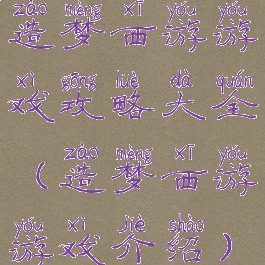 zào mèng xī yóu yóu
造梦西游游
xì gōng lüè dà quán
戏攻略大全
zào mèng xī yóu
（造梦西游
yóu xì jiè shào
游戏介绍）